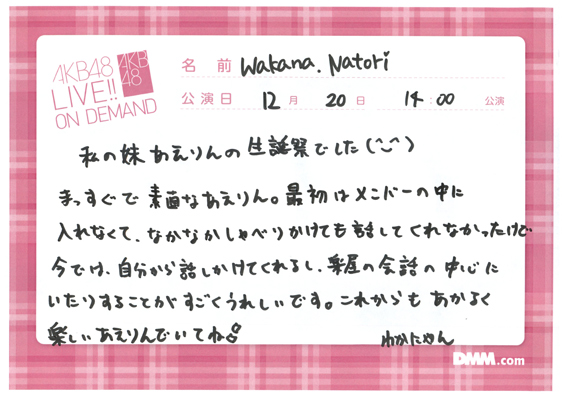 AKB48
LIVE!!
ON DEMAND
AKB
48
名 前 Wakana. Natori
公演日 12月 20日 14:00 公演
私の妹あえりんの生誕祭でした(^-^)
まっすぐで素直なあえりん。最初はメンバーの中に
入れなくて、なかなかしゃべりかけても話してくれなかったけど
今では、自分から話しかけてくれるし、楽屋の会話の中心に
いたりすることがすごくうれしいです。これからもあかるく
楽しいあえりんでいてね
わかにゃん
DMM.com